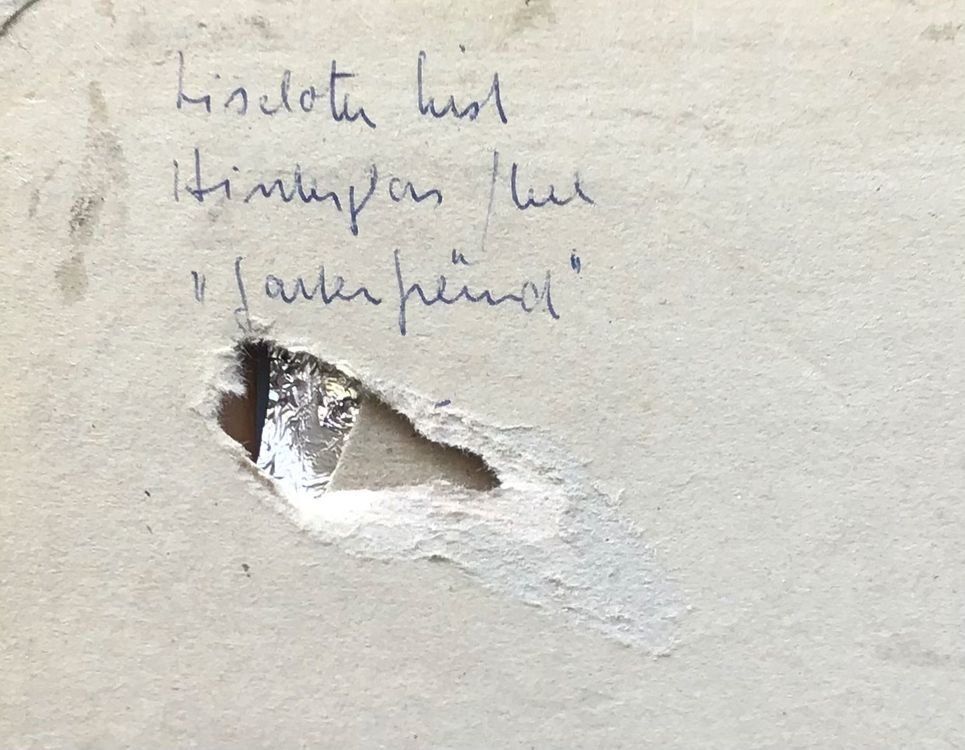 Liselotte List
Hinterglas
„Gartenfreund"